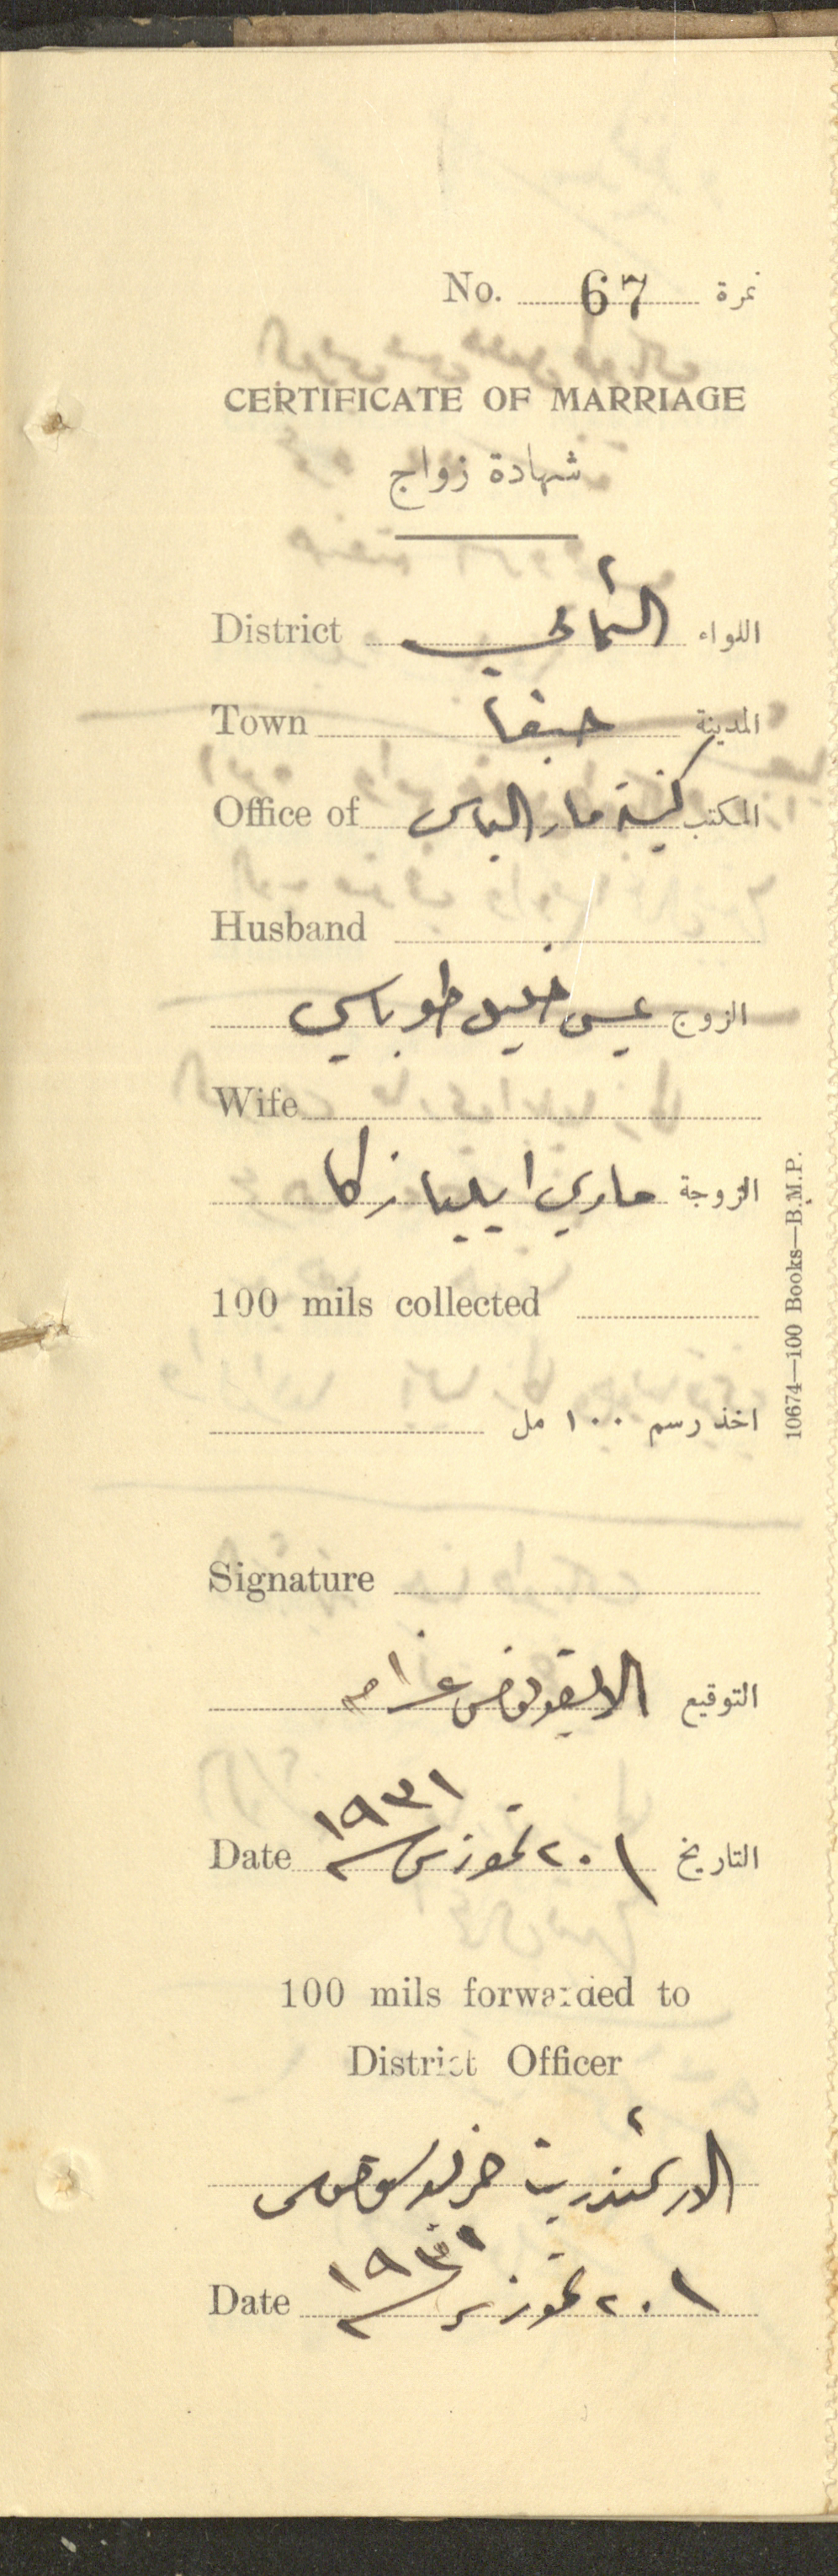 No. 67 نمرة
CERTIFICATE OF MARRIAGE
شهادة زواج
District الشمالي اللواء
Town حيفا المدينة
Office of كنيسة مار الياس المكتب
Husband
الزوج عيسى خليل طوباسي
Wife
الزوجة ماري ايليا زكا
100 mils collected
اخذ رسم ١٠٠ مل
Signature
التوقيع الايقونومس
Date ٢٠ تموز سنة ١٩٣١ التاريخ
100 mils forwarded to
District Officer
الارشمندريت
Date ٢٠ تموز سنة ١٩٣١
10674—100 Books—B.M.P.